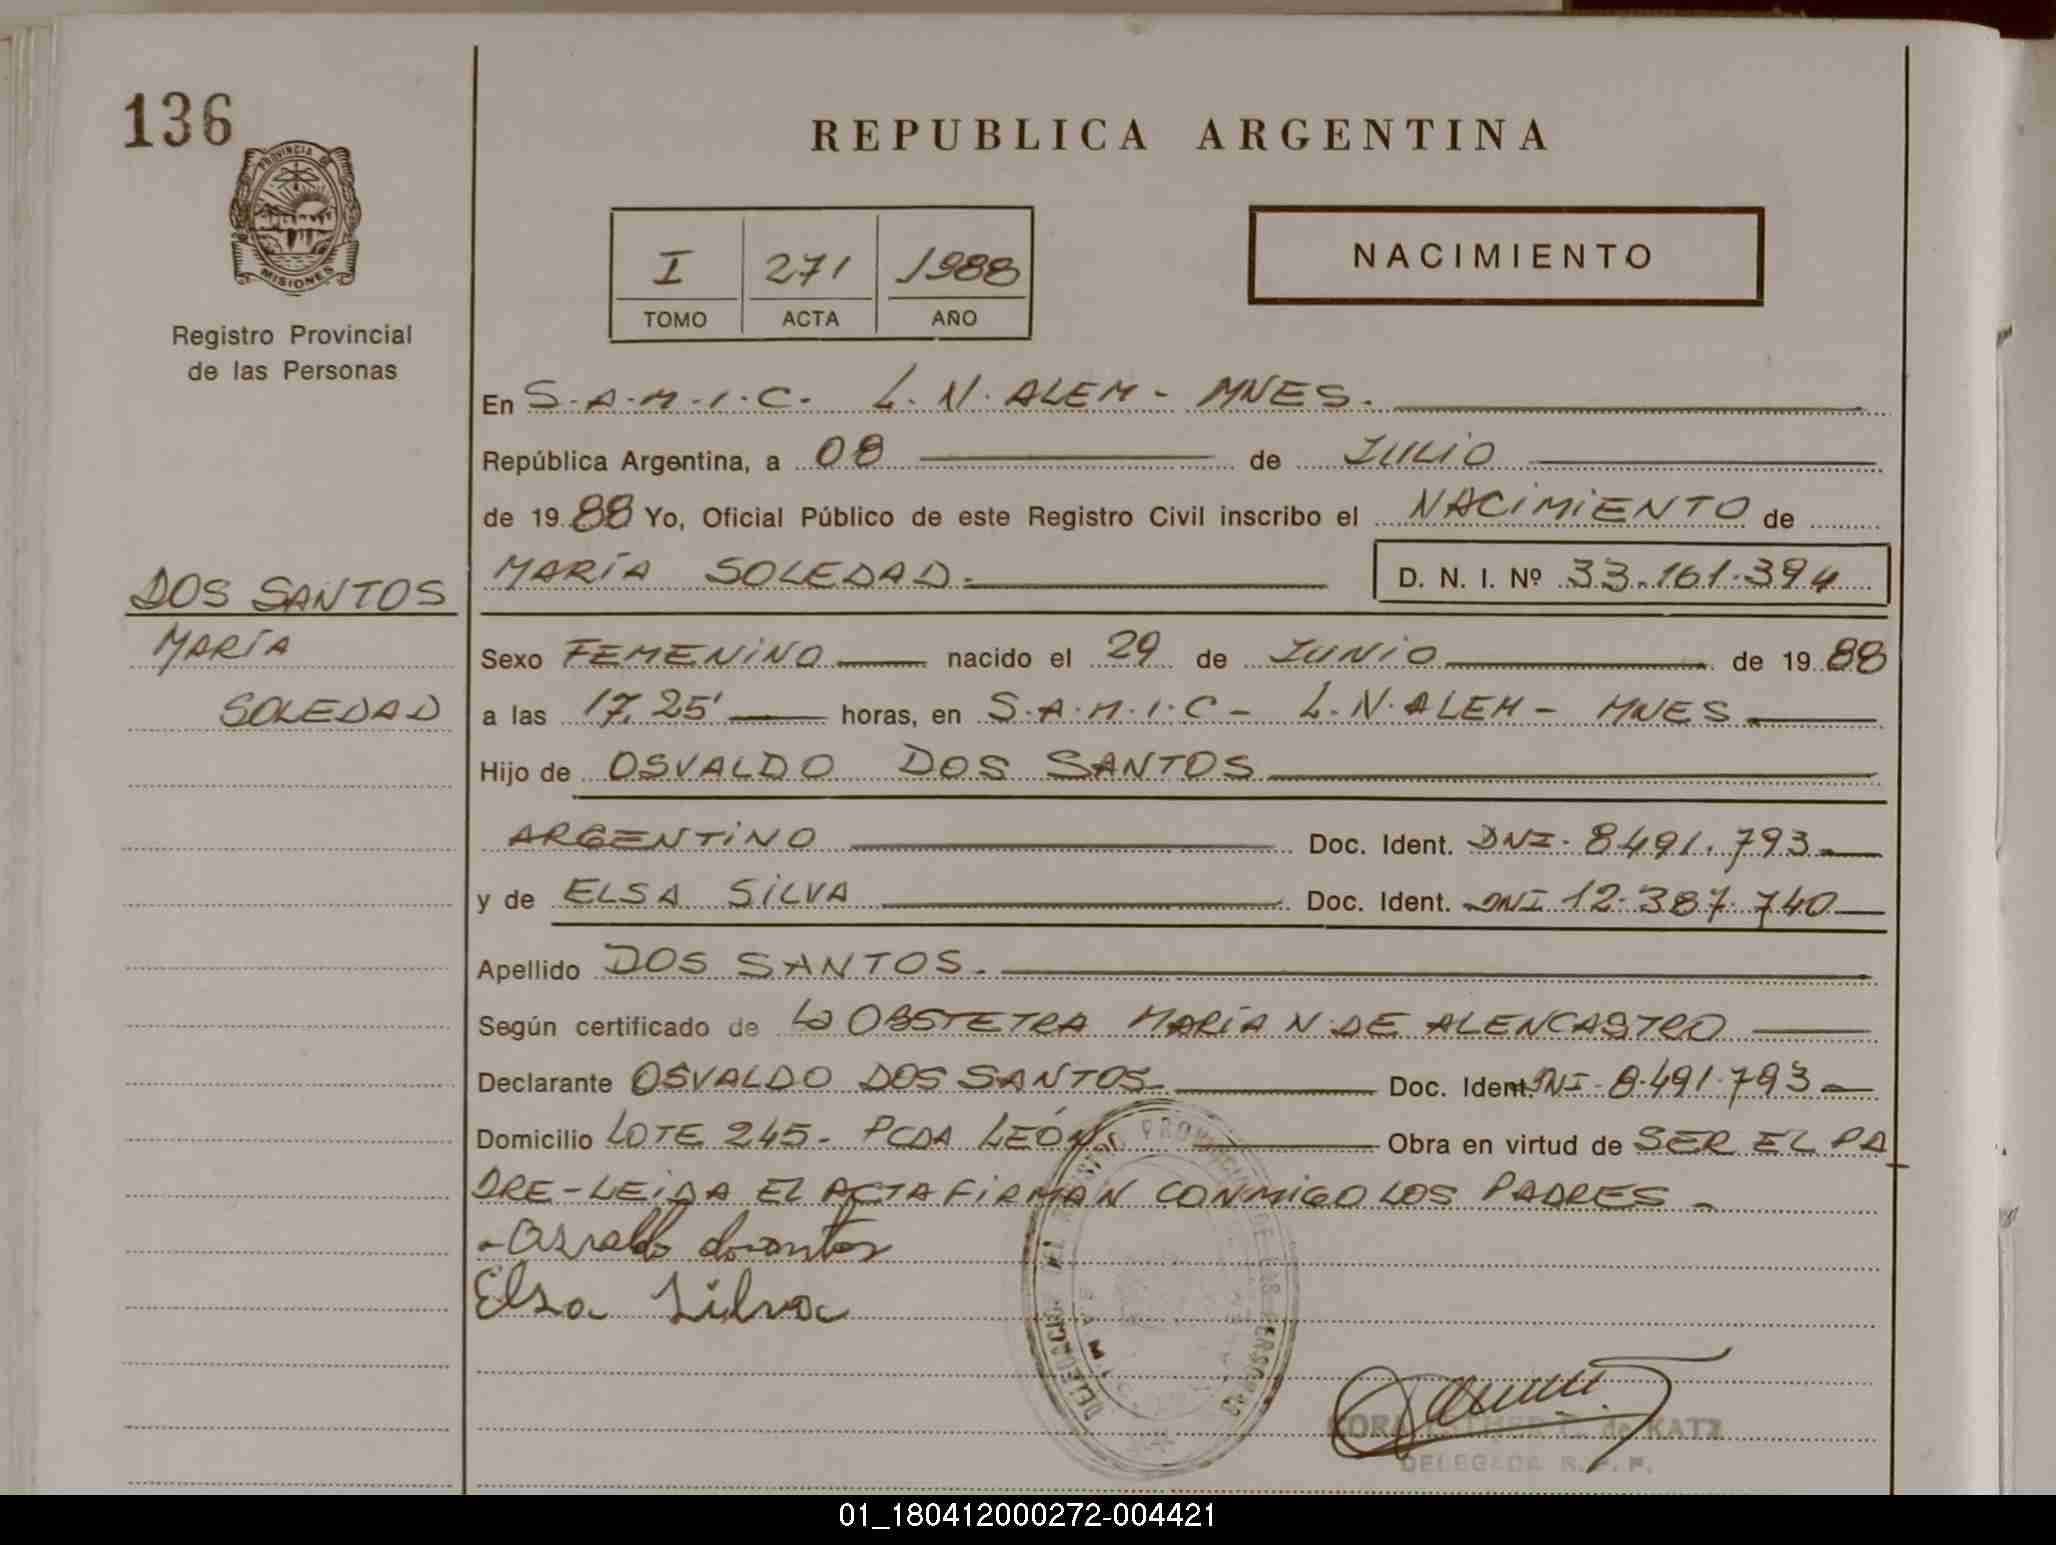 136
REPUBLICA ARGENTINA
PROVINCIA DE
MISIONES
Registro Provincial
de las Personas
I 271 1988
TOMO ACTA AÑO
NACIMIENTO
En S.A.M.I.C. L.N. ALEM - MNES.
República Argentina, a 08 de JULIO
de 1988 Yo, Oficial Público de este Registro Civil inscribo el NACIMIENTO de
MARÍA SOLEDAD. D. N. I. Nº 33.161.394
DOS SANTOS
MARÍA
SOLEDAD
Sexo FEMENINO nacido el 29 de JUNIO de 1988
a las 17,25' horas, en S.A.M.I.C - L.N. ALEM - MNES
Hijo de OSVALDO DOS SANTOS
ARGENTINO Doc. Ident. DNI. 8491.793
y de ELSA SILVA Doc. Ident. DNI 12.387.740
Apellido DOS SANTOS.
Según certificado de La OBSTETRA MARÍA N. DE ALENCASTRO
Declarante OSVALDO DOS SANTOS Doc. Ident. DNI - 8.491.793
Domicilio LOTE 245 - PCDA LEÓN Obra en virtud de SER EL PA
DRE - LEIDA EL ACTA FIRMAN CONMIGO LOS PADRES -
- Osvaldo dosantos
Elsa Silva
DELEGACION DEL REGISTRO PROVINCIAL DE LAS PERSONAS
de KATZ
DELEGADA R. P. P.
01_180412000272-004421